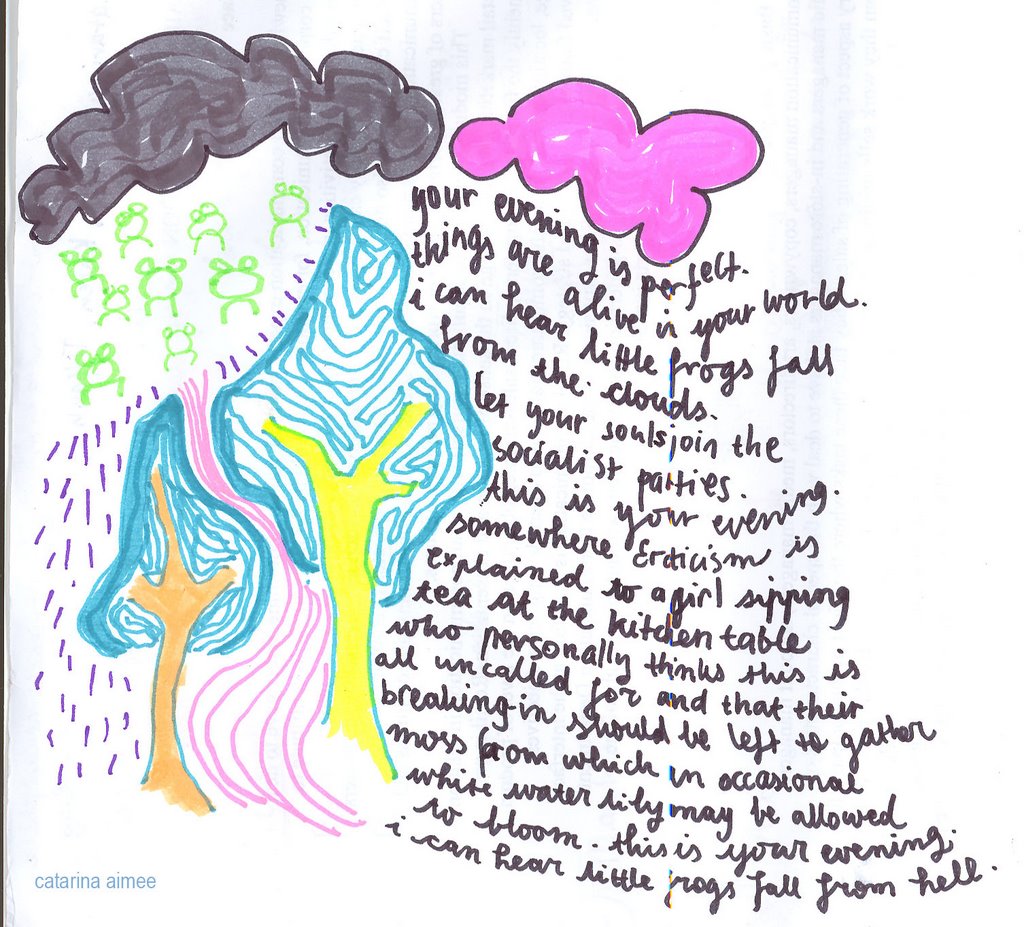 your evening is perfect.
things are alive in your world.
i can hear little frogs fall
from the clouds.
let your souls join the
socialist parties.
this is your evening.
somewhere Eroticism is
explained to a girl sipping
tea at the kitchen table
who personally thinks this is
all uncalled for and that their
breaking-in should be left to gather
moss from which an occasional
white water lily may be allowed
to bloom. this is your evening.
i can hear little frogs fall from hell.
catarina aimee